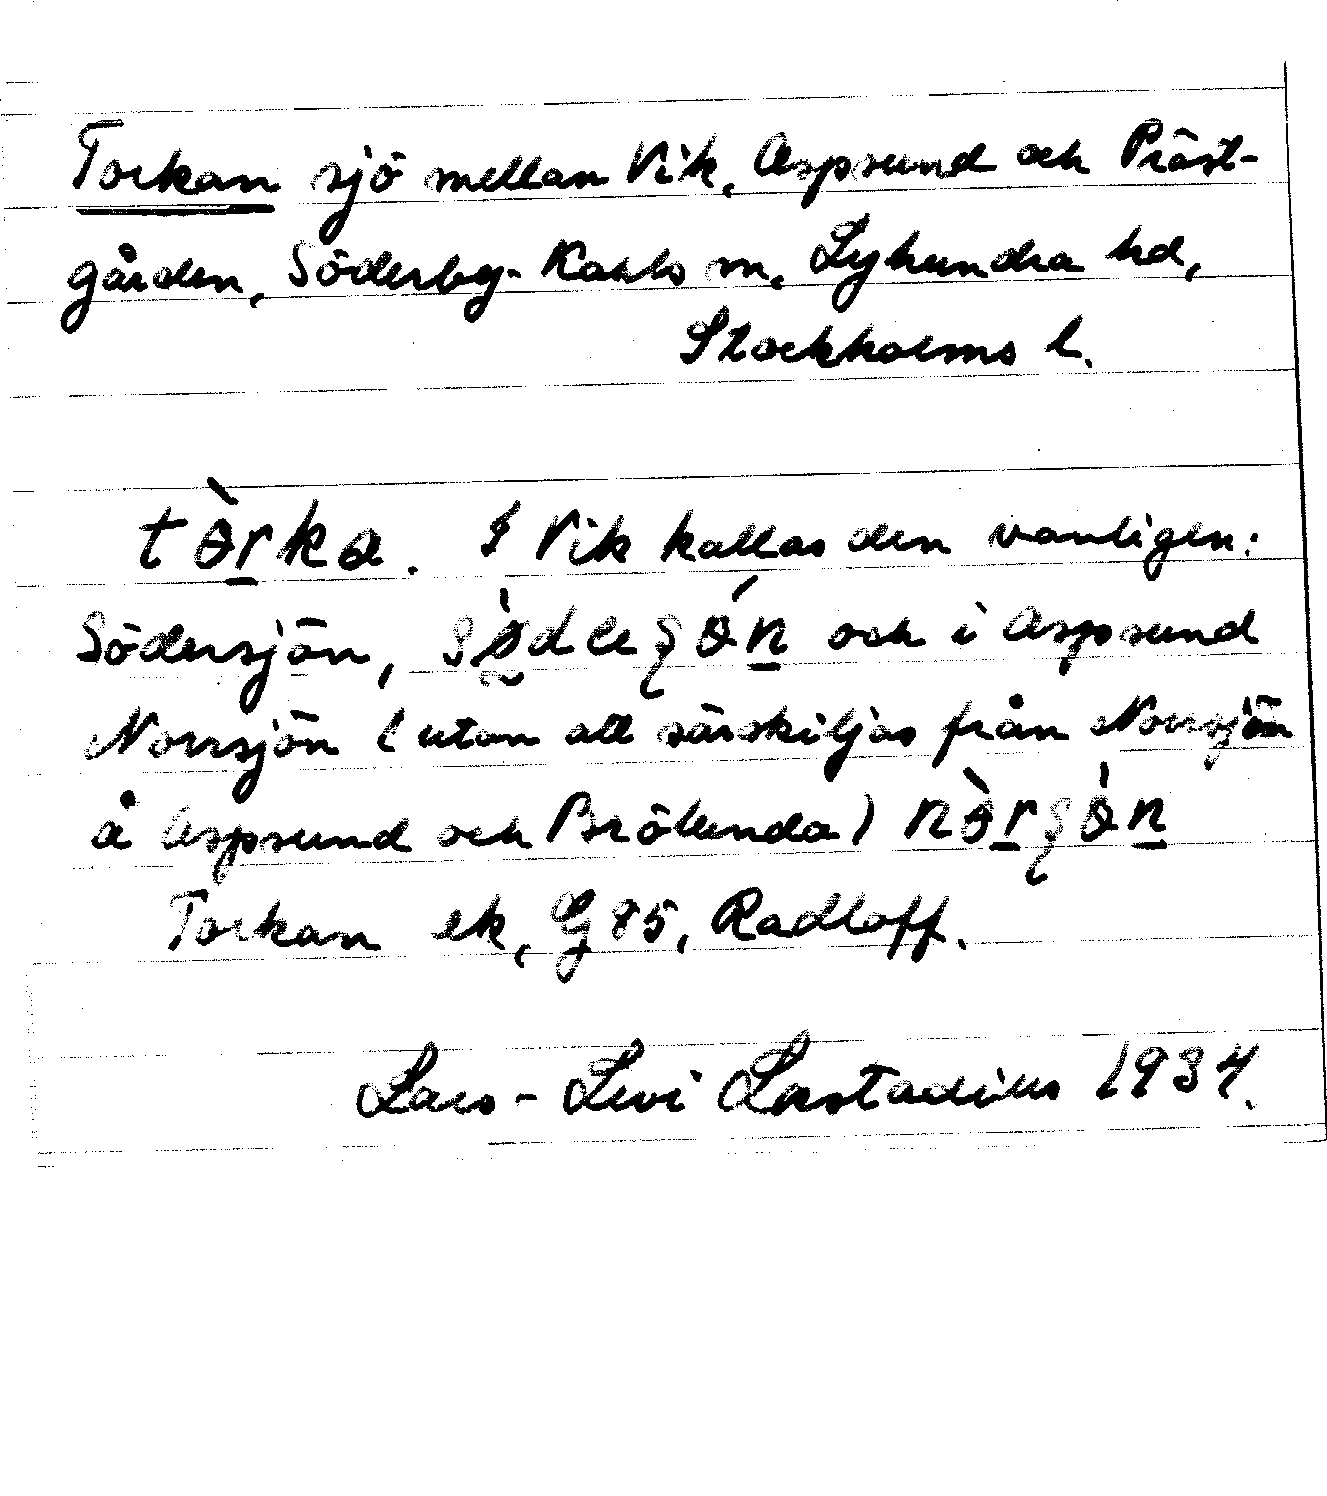 Torkan sjö mellan Vik, Aspsund och Präst-
gården, Söderby-Karls sn, Lyhundra hd,
Stockholms l.
tòrka. I Vik kallas den vanligen:
Södersjön, och i Aspsund
Norrsjön (utan att särskiljas från Norrsjön
å Aspsund och Brölunda)
Torkan ek, G 85, Radloff.
Lars-Levi Læstadius 1934.